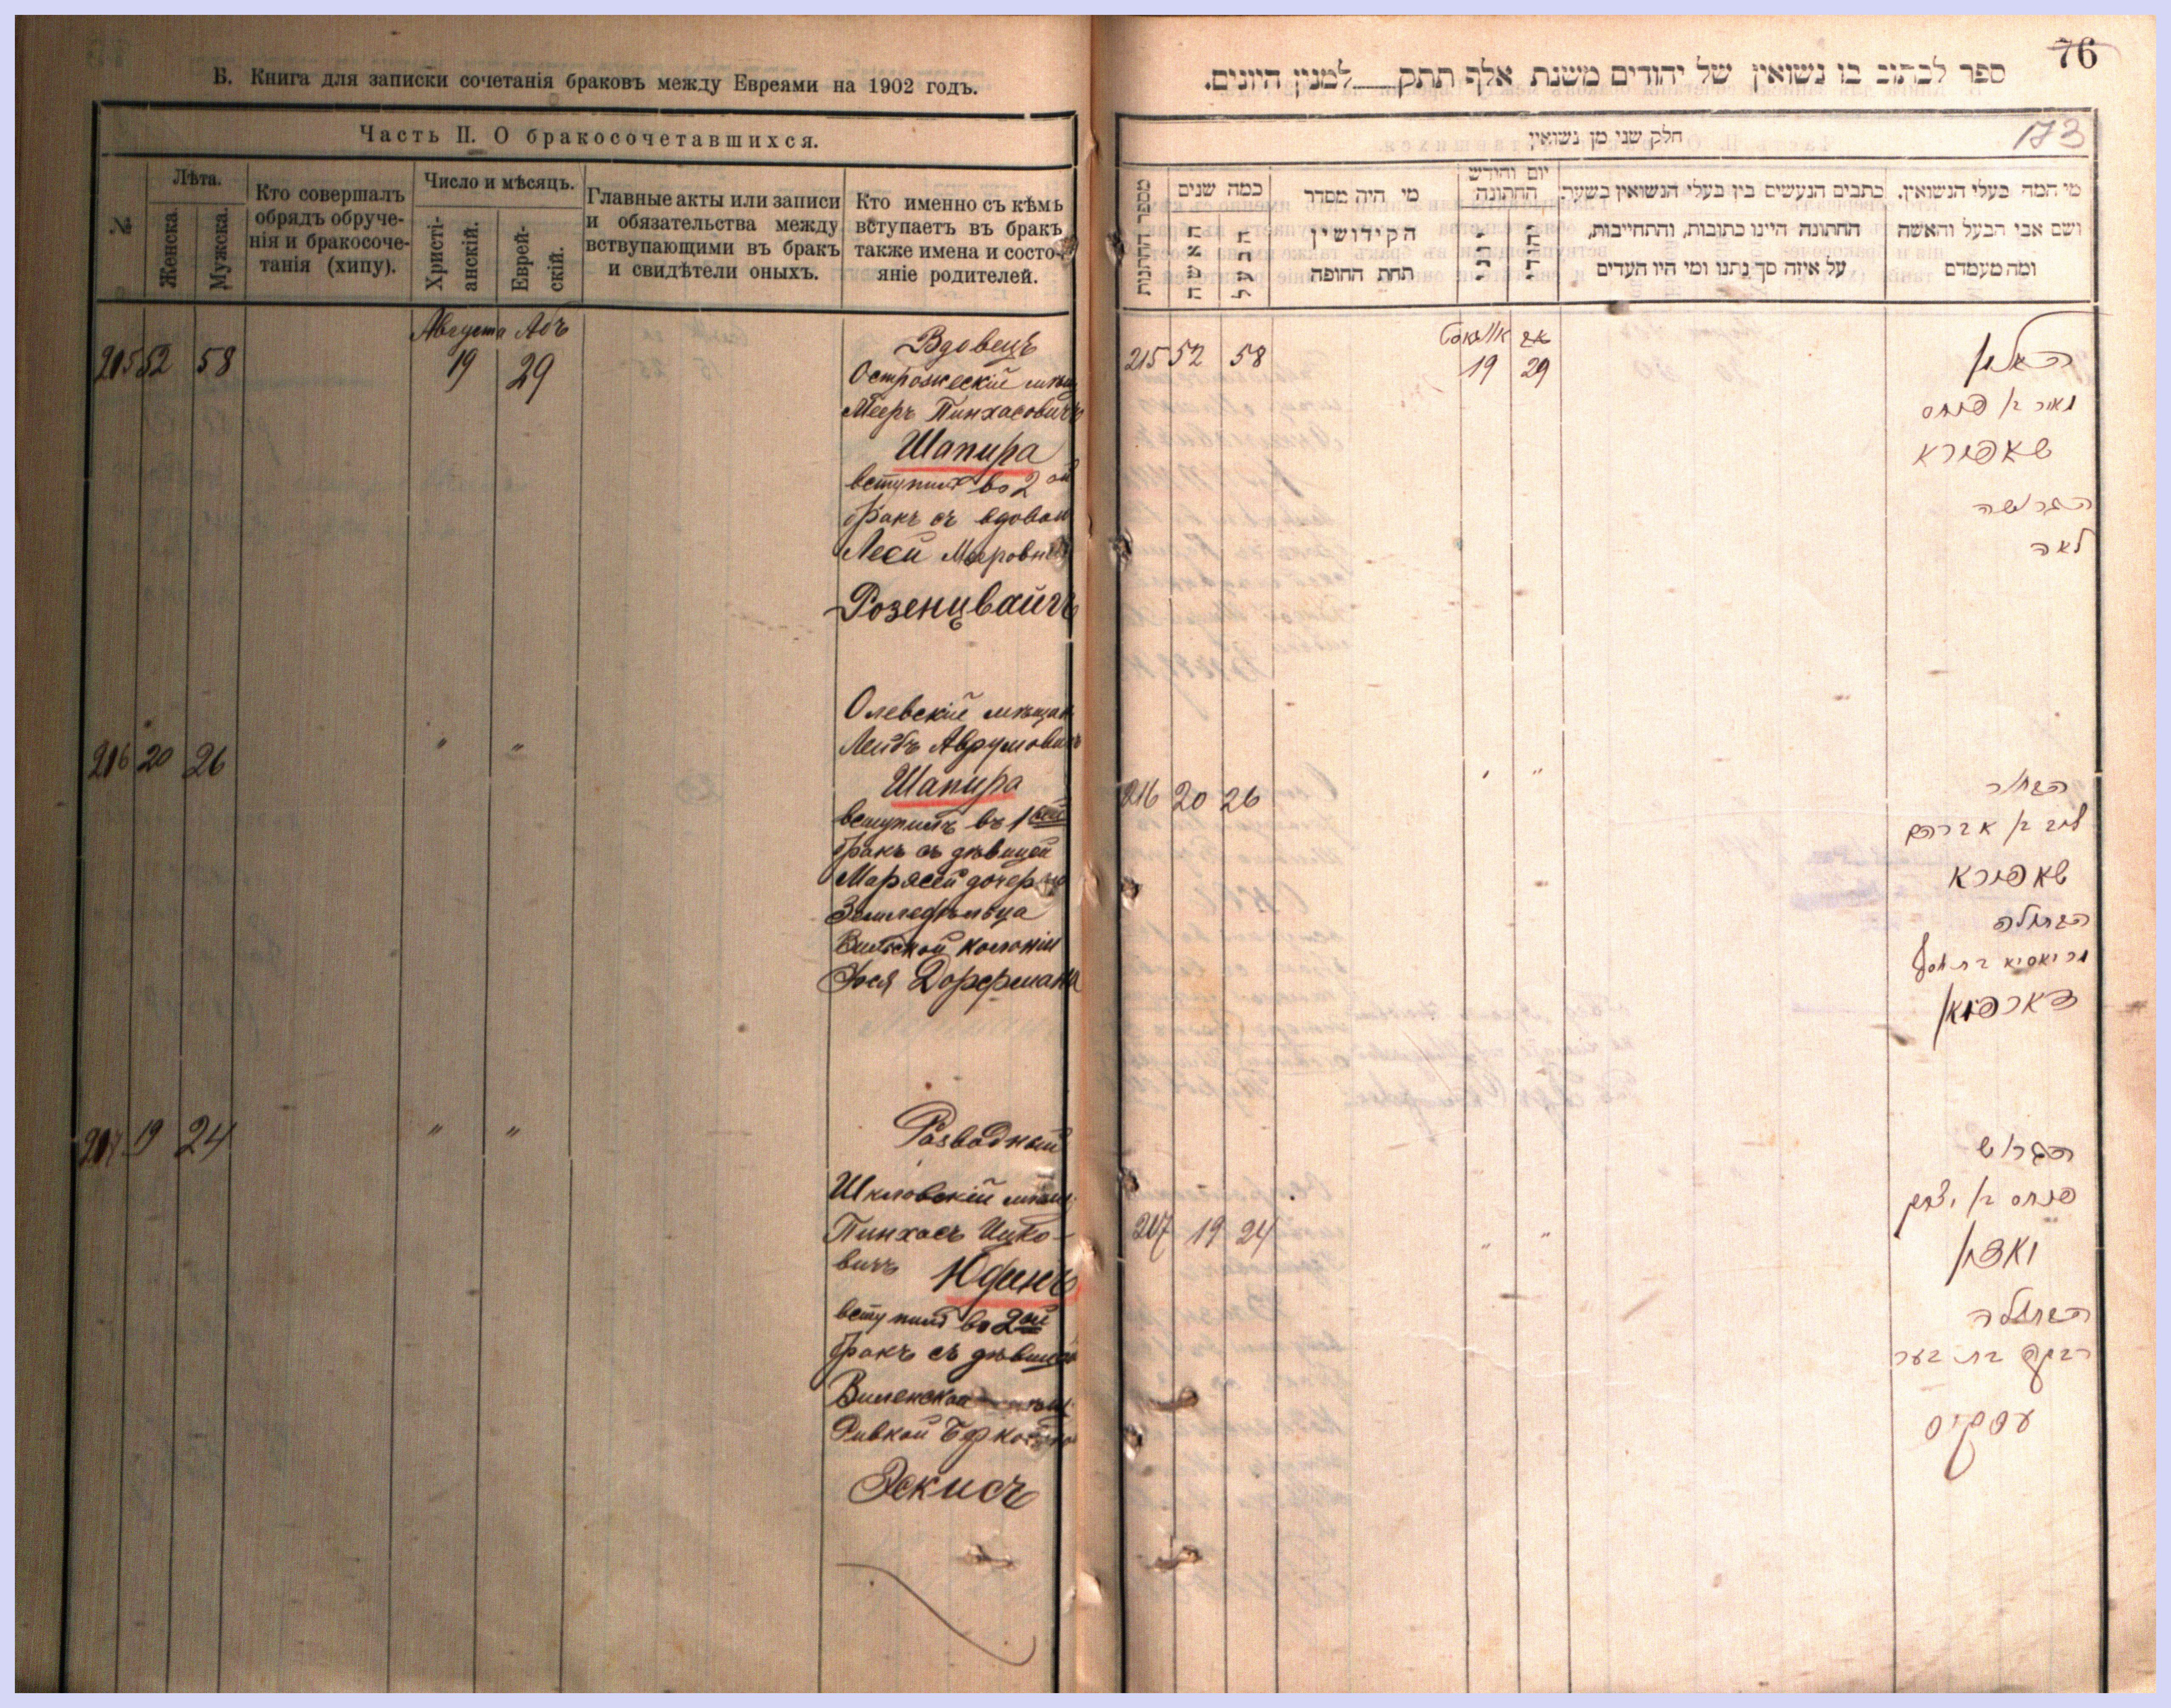 Б. Книга для записки сочетанія браковъ между Евреями на 1902 годъ.
Часть II. О бракосочетавшихся.
№
Лѣта.
Женска.
Мужска.
Кто совершалъ
обрядъ обруче-
нія и бракосоче-
танія (хипу).
Число и мѣсяцъ.
Христі-
анскій.
Еврей-
скій.
Главные акты или записи
и обязательства между
вствупающими въ бракъ
и свидѣтели оныхъ.
Кто именно съ кѣмъ
вступаетъ въ бракъ
также имена и состо-
яніе родителей.
Августа Абъ
215 52 58 19 29
Вдовецъ
Острожескій мѣщ
Мееръ Пинхасовичъ
Шапира
вступилъ во 2ой
бракъ съ вдовой
Леей Мееровной
Розенцвайгъ
216 20 26 " "
Олевскій мѣщан
Лейбъ Аврумовичъ
Шапира
вступилъ въ 1ый
бракъ съ дѣвицей
Марясей дочерью
Земледѣльца
колоніи
Дорфмана
217 19 24 " "
Разводный
Шкловскій мѣщ
Пинхасъ Ицко-
вичъ Юдинъ
вступилъ во 2ой
бракъ съ дѣвицей
Виленской мѣщ
Ривкой
Эскисъ
76
ספר לכתוב בו נשואין של יהודים משנת אלף תתק למנין היונים.
חלק שני מן נשואין
173
מספר החתונות
כמה שנים
האשה
הבעל
מי היה מסדר
הקידושין
תחת החופה
יום וחודש
החתונה
יוני
יהודי
כתבים הנעשים בין בעלי הנשואין בשעת
החתונה היינו כתובות, והתחייבות,
על איזה סך נתנו ומי היו העדים
מי המה בעלי הנשואין,
ושם אבי הבעל והאשה
ומה מעמדם
אויגוסט אב
215 52 58 19 29
האלמן
מאיר בן פנחס
שאפירא
הגרושה
לאה
216 20 26 " "
הבחור
ליב בן אברהם
שאפירא
הבתולה
מריאסיא בת יוסף
דארפמאן
217 19 24 " "
הגרוש
פנחס בן יצחק
יאדין
הבתולה
רבקה בת בער
עסקיס